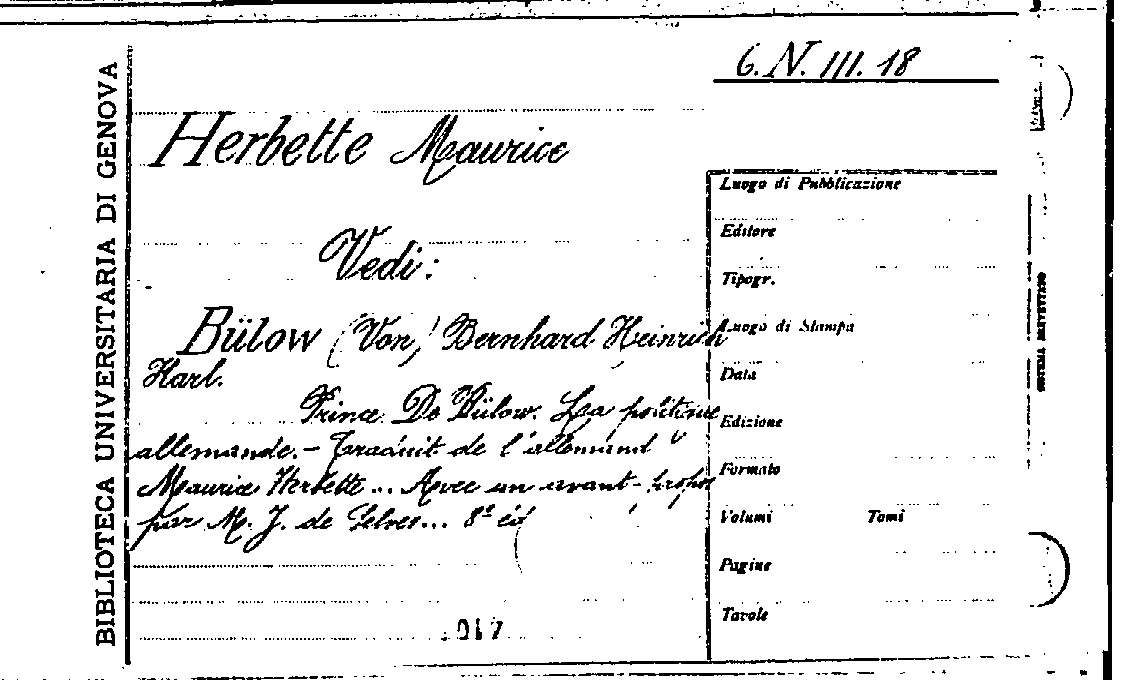 6. N. III. 18
BIBLIOTECA UNIVERSITARIA DI GENOVA
Herbette Maurice
Vedi:
Bülow (Von) Bernhard Heinrich
Karl.
Prince De Bülow. La politique
allemande. - Traduit de l'allemand
Maurice Herbette... Avec un avant-propos
par M. J. de Selves... 8ª éd
017
Luogo di Pubblicazione
Editore
Tipogr.
Luogo di Stampa
Data
Edizione
Formato
Volumi Tomi
Pagine
Tavole
SISTEMA BREVETTATO